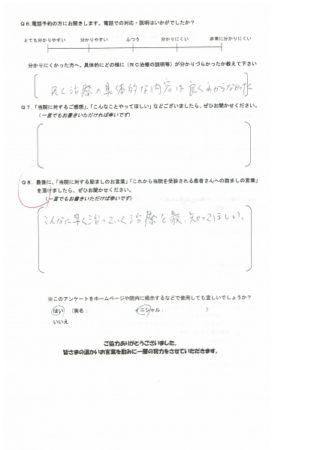 Q6.電話予約の方にお聞きします。電話での対応・説明はいかがでしたか？
とても分かりやすい 分かりやすい ふつう 分かりにくい 非常に分かりにくい
分かりにくかった方へ、具体的にどの様に（RC治療の説明等）が分かりづらかったか教えて下さい
RC治療の具体的な内容は良くわからなかった
Q7.「当院に対するご感想」、「こんなことやってほしい」などございましたら、ぜひお聞かせください。
（一言でもお書きいただければ幸いです）
Q8.最後に、「当院に対する励ましのお言葉」「これから当院を受診される患者さんへの励ましの言葉」
を頂けましたら、ぜひお聞かせください。
（一言でもお書きいただければ幸いです）
こんなに早く治っていく治療を 知ってほしい。
※このアンケートをホームページや院内に掲示するなどで使用しても宜しいでしょうか？
はい （実名： イニシャル： ）
いいえ
ご協力ありがとうございました。
皆さまの温かいお言葉を励みに一層の努力をさせていただきます。